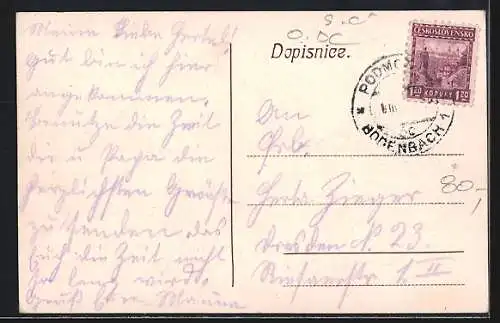 Meine liebe Herta!
Gut bin ich hier
angekommen,
benütze die Zeit
dir u Papa die
herzlichsten Grüße
zu senden das
Euch die Zeit nicht
so lang wird.
Gruß Eure Mama
Dopisnice.
ČESKOSLOVENSKO
1.20 KORUNY 1.20
PODMOKLY
BODENBACH 1
An
Frl.
Herta Zieger
Dresden N 23.
II
80,-